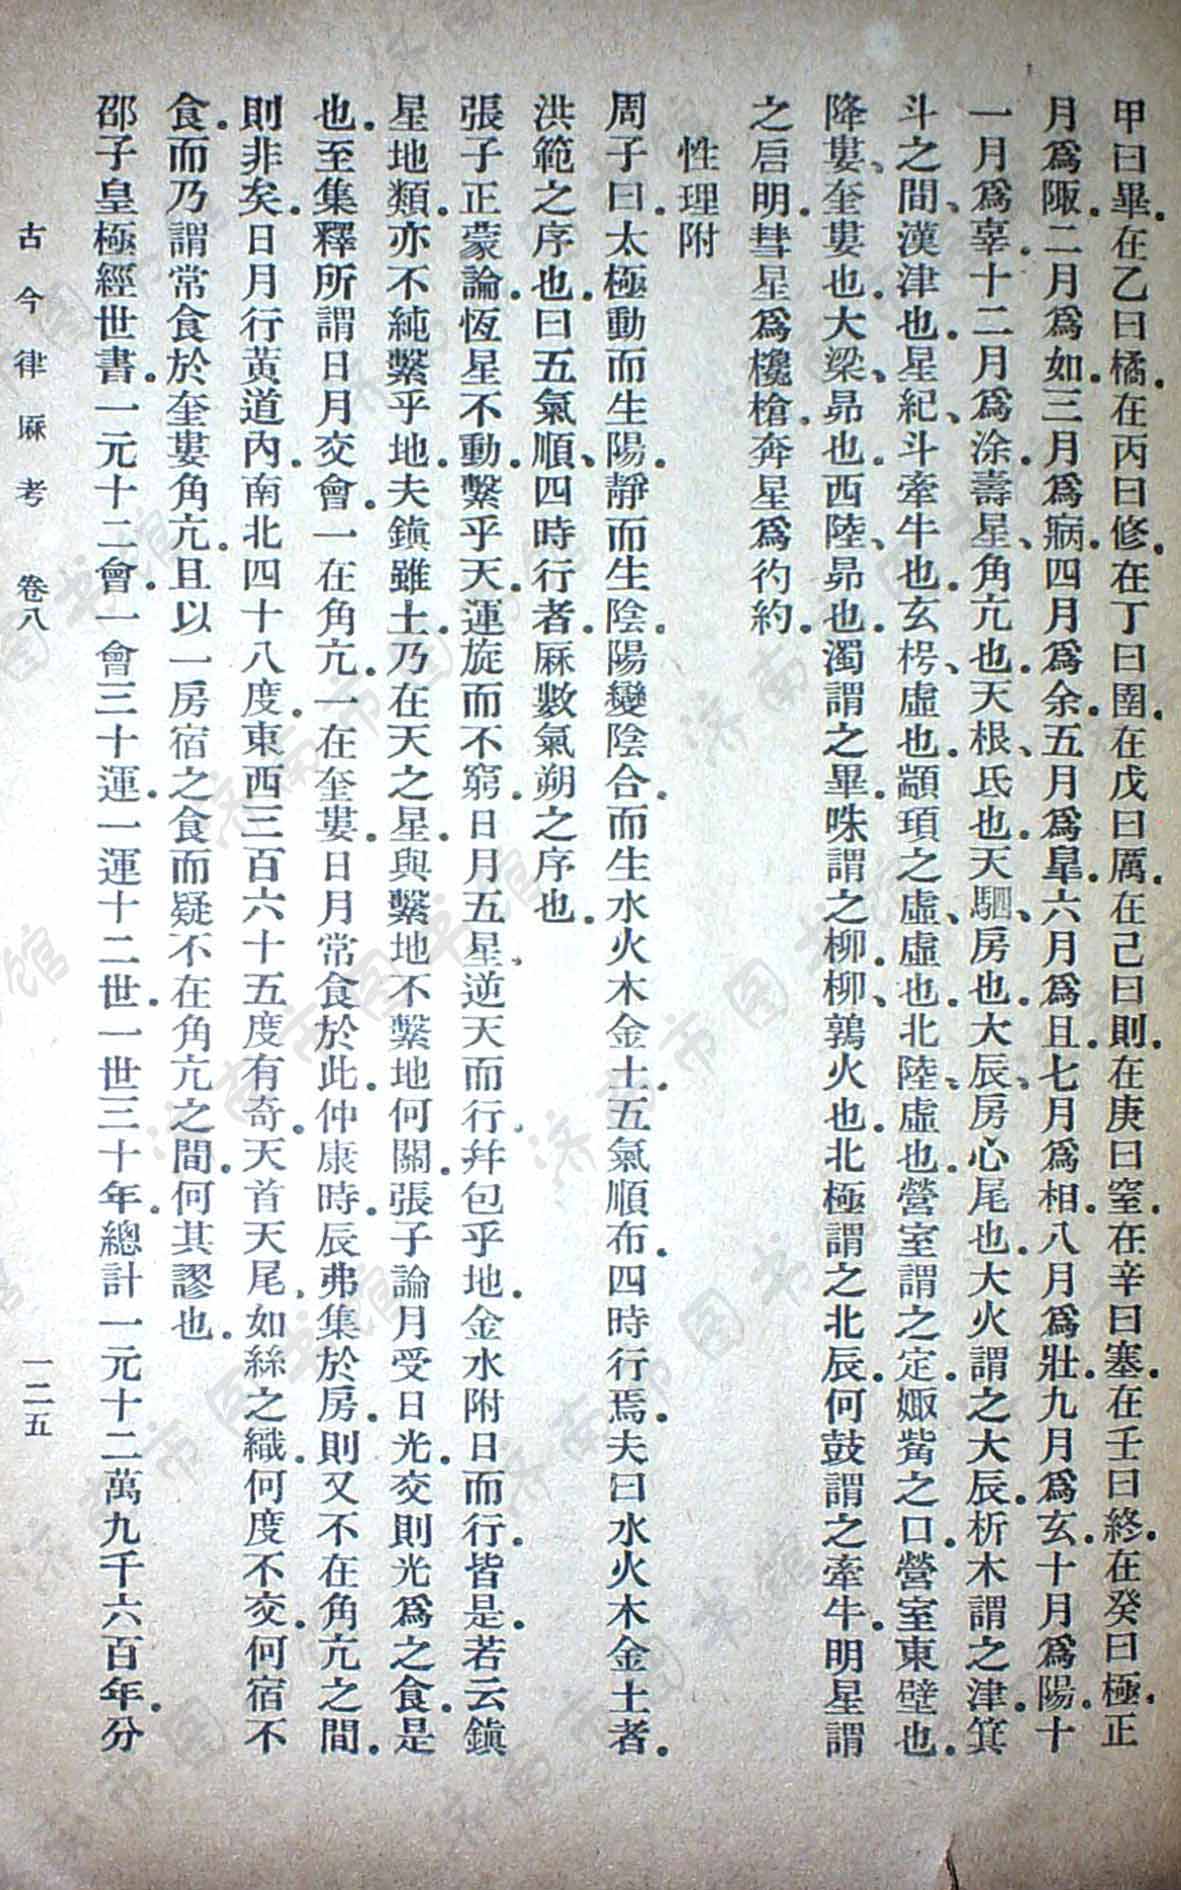 甲曰畢。在乙曰橘。在丙曰修。在丁曰圉。在戊曰厲。在己曰則。在庚曰窒。在辛曰塞。在壬曰終。在癸曰極。正
月爲陬。二月爲如。三月爲寎。四月爲余。五月爲皐。六月爲且。七月爲相。八月爲壯。九月爲玄。十月爲陽。十
一月爲辜。十二月爲涂。壽星、角亢也。天根、氐也。天駟、房也。大辰、房心尾也。大火謂之大辰。析木謂之津。箕
斗之間、漢津也。星紀、斗牽牛也。玄枵、虛也。顓頊之虛、虛也。北陸、虛也。營室謂之定。娵觜之口。營室東壁也。
降婁、奎婁也。大梁、昴也。西陸、昴也。濁謂之畢。咮謂之柳。柳、鶉火也。北極謂之北辰。何鼓謂之牽牛。明星謂
之启明。彗星爲欃槍。奔星爲彴約。
性理附
周子曰。太極動而生陽。靜而生陰。陽變陰合。而生水火木金土。五氣順布。四時行焉。夫曰水火木金土者。
洪範之序也。曰五氣順、四時行者。厤數氣朔之序也。
張子正蒙論。恆星不動。繫乎天。運旋而不窮。日月五星、逆天而行。幷包乎地。金水附日而行。皆是。若云鎮
星地類。亦不純繫乎地。夫鎮雖土。乃在天之星。與繫地不繫地何關。張子論月受日光。交則光爲之食。是
也。至集釋所謂日月交會。一在角亢。一在奎婁。日月常食於此。仲康時。辰弗集於房。則又不在角亢之間。
則非矣。日月行黃道內。南北四十八度。東西三百六十五度有奇。天首天尾。如絲之織。何度不交。何宿不
食。而乃謂常食於奎婁角亢。且以一房宿之食。而疑不在角亢之間。何其謬也。
邵子皇極經世書。一元十二會。一會三十運。一運十二世。一世三十年。總計一元十二萬九千六百年。分
古今律厤考 卷八 一二五
济南市图书馆